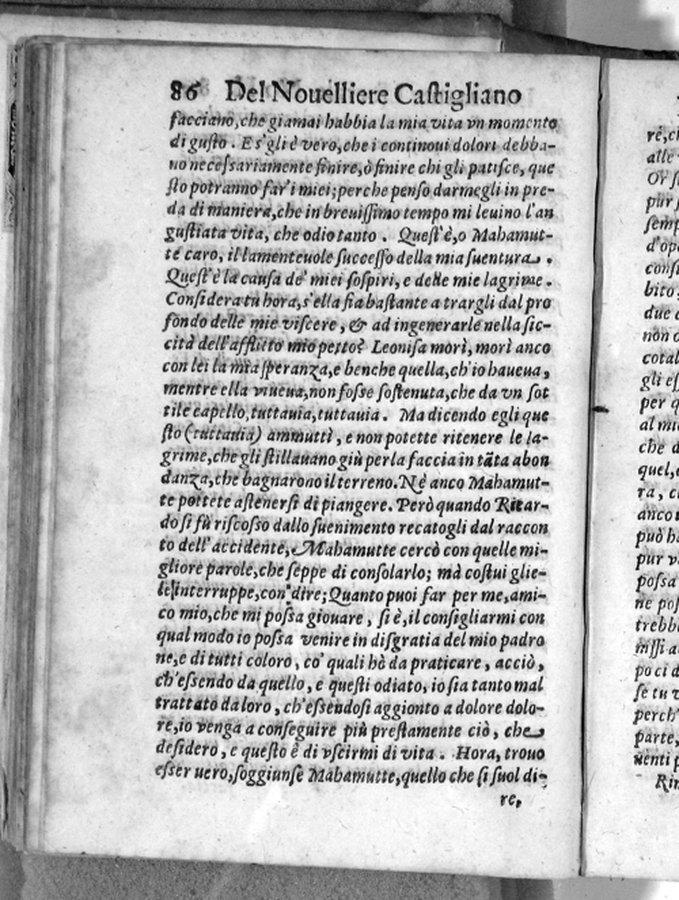 86 Del Nouelliere Castigliano
facciano, che giamai habbia la mia vita vn momento
di gusto. E s'gli è vero, che i continoui dolori debba-
no necessariamente finire, ò finire chi gli patisce, que
sto potranno far'i miei; perche penso darmegli in pre-
da di maniera, che in breuissimo tempo mi leuino l'an
gustiata vita, che odio tanto. Quest'è, o Mahamut-
te caro, il lamenteuole successo della mia suentura.
Quest'è la causa de' miei sospiri, e delle mie lagrime.
Considera tù hora, s'ella sia bastante a trargli dal pro
fondo delle mie viscere, & ad ingenerarle nella sic-
cità dell'afflitto mio petto? Leonisa morì, morì anco
con lei la mia speranza, e benche quella, ch'io haueua,
mentre ella viueua, non fosse sostenuta, che da vn sot
tile capello, tuttauia, tuttauia. Ma dicendo egli que
sto (tuttauia) ammuttì, e non potette ritenere le la-
grime, che gli stillauano giù per la faccia in tãta abon
danza, che bagnarono il terreno. Nè anco Mahamut-
te pottete astenersi di piangere. Però quando Ricar-
do si fù riscosso dallo suenimento recatogli dal raccon
to dell'accidente, Mahamutte cercò con quelle mi-
gliore parole, che seppe di consolarlo; mà costui glie-
le interruppe, con dire; Quanto puoi far per me, ami-
co mio, che mi possa giouare, si è, il consigliarmi con
qual modo io possa venire in disgratia del mio padro
ne, e di tutti coloro, co' quali hò da praticare, acciò,
ch'essendo da quello, e questi odiato, io sia tanto mal
trattato da loro, ch'essendosi aggionto a dolore dolo-
re, io venga a conseguire più prestamente ciò, che
desidero, e questo è di vscirmi di vita. Hora, trouo
esser uero, soggiunse Mahamutte, quello che si suol di-
re,
rè, ch
alle
Or s
pur s
semp
d'op
consi
bito,
due
non o
cotal
gli es
per q
al mi
che d
quel,
ra, c
anco
può h
pur v
possa
ne pos
trebb
missi a
poci d
se tu v
perch'
parte,
uenti p
Rin